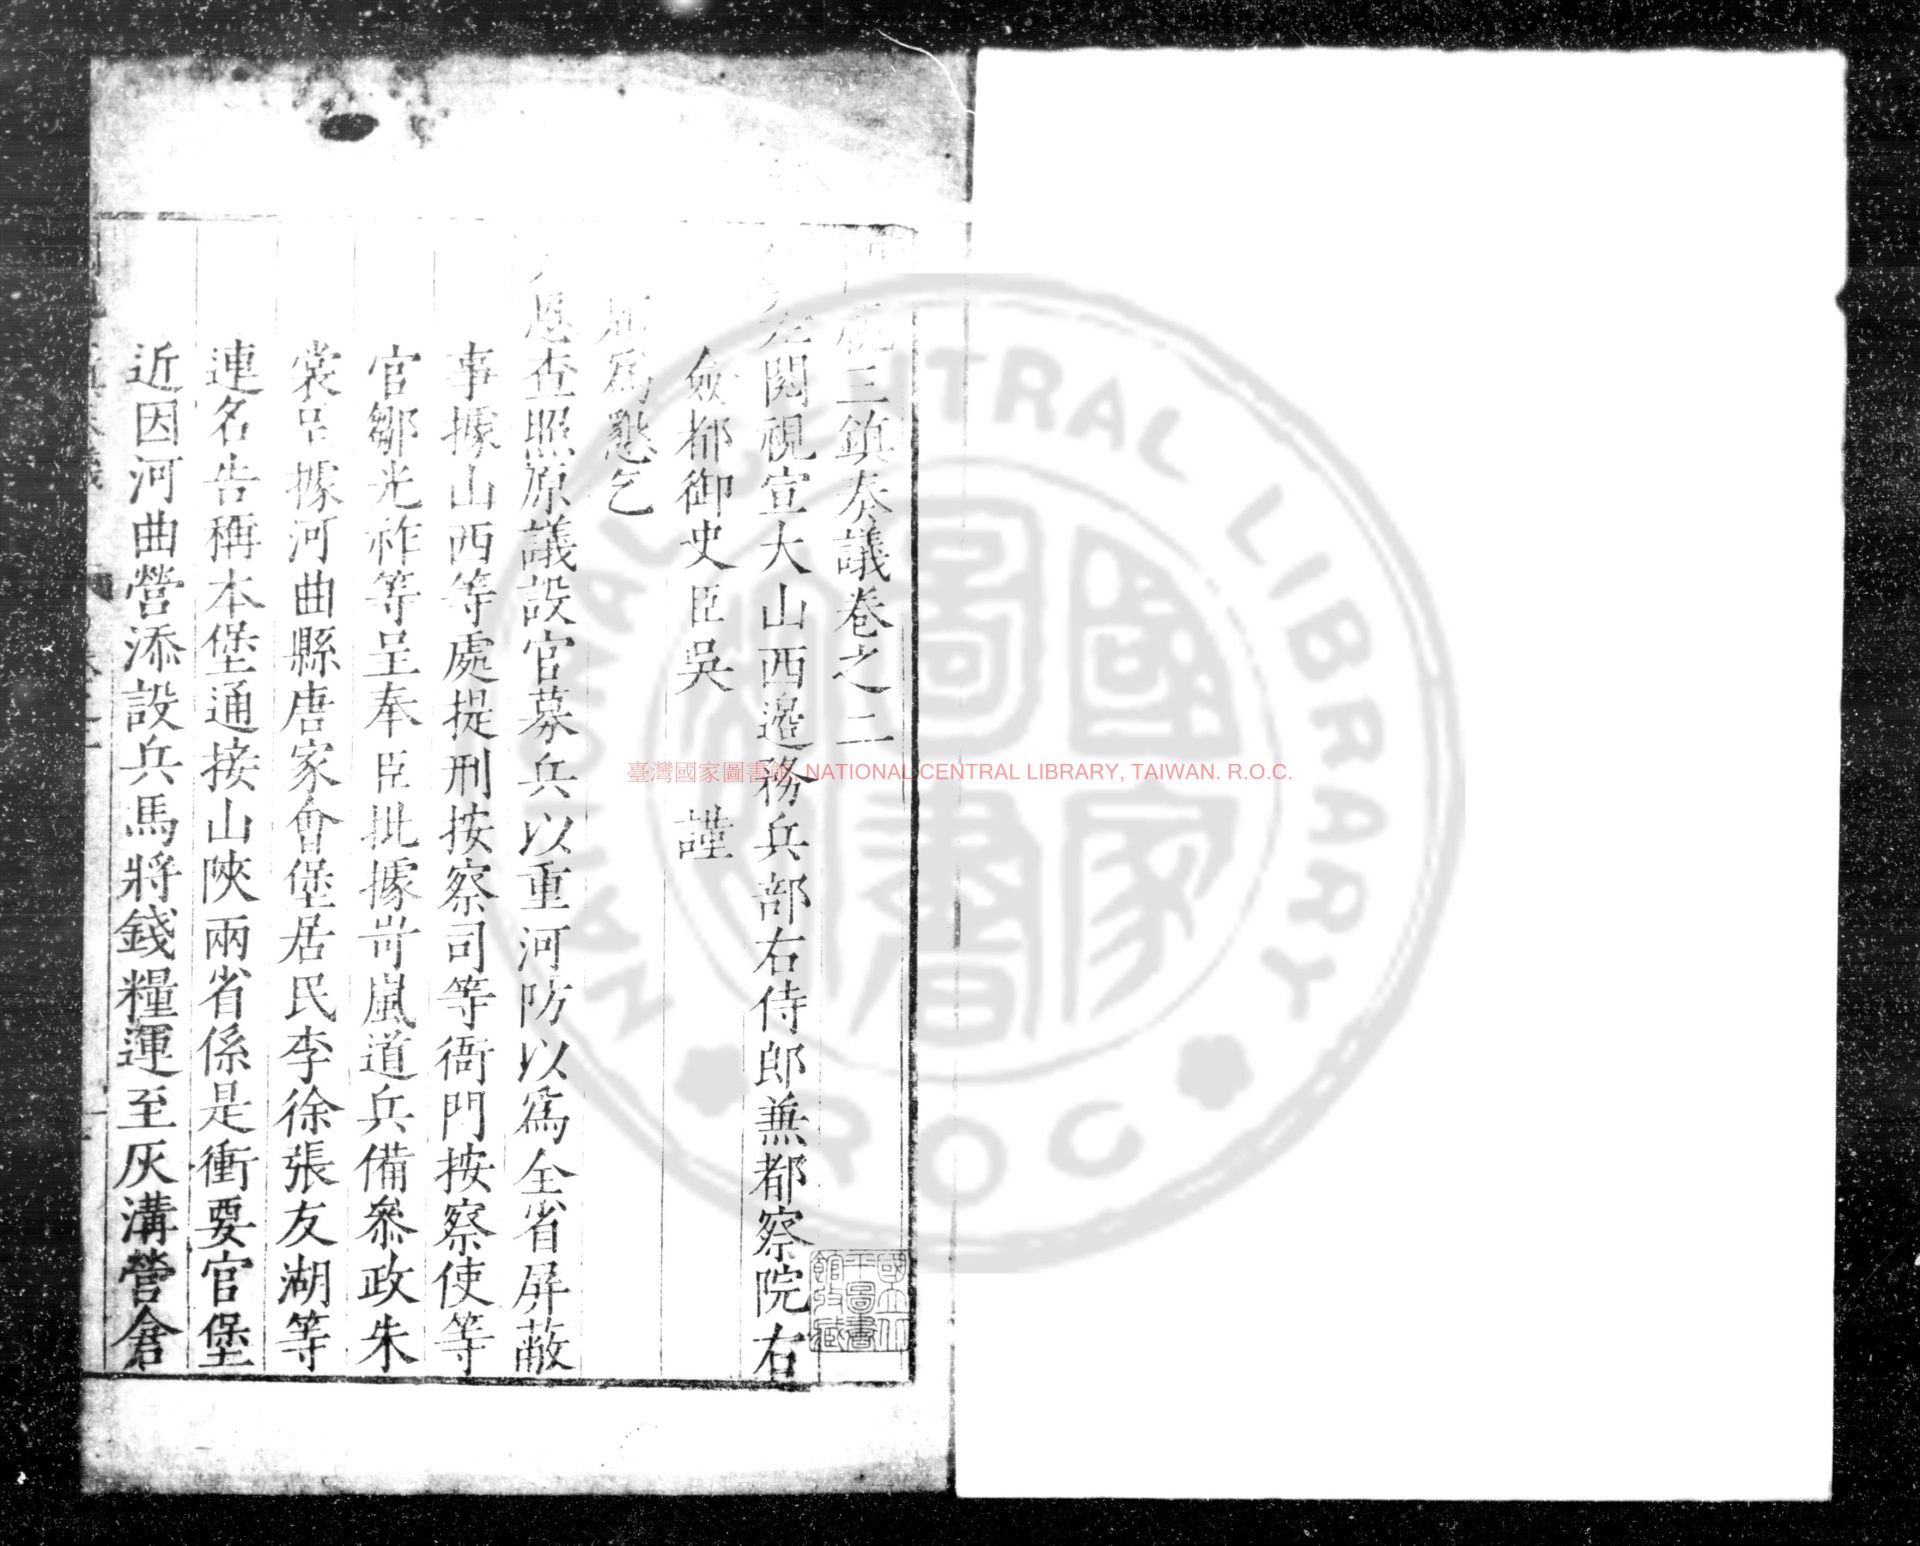 視三鎮奏議卷之二
差閱視宣大山西邊務兵部右侍郎兼都察院右
僉都御史臣吳 謹
題爲懇乞
恩查照原議設官募兵以重河防以爲全省屏蔽
事據山西等處提刑按察司等衙門按察使等
官鄒光祚等呈奉臣批據岢嵐道兵備叅政朱
裳呈據河曲縣唐家會堡居民李徐張友湖等
連名告稱本堡通接山陝兩省係是衝要官堡
近因河曲營添設兵馬將錢糧運至灰溝營倉
臺灣國家圖書館, NATIONAL CENTRAL LIBRARY, TAIWAN. R.O.C.
NATIONAL CENTRAL LIBRARY
國家圖書
ROC
國立北平圖書館收藏